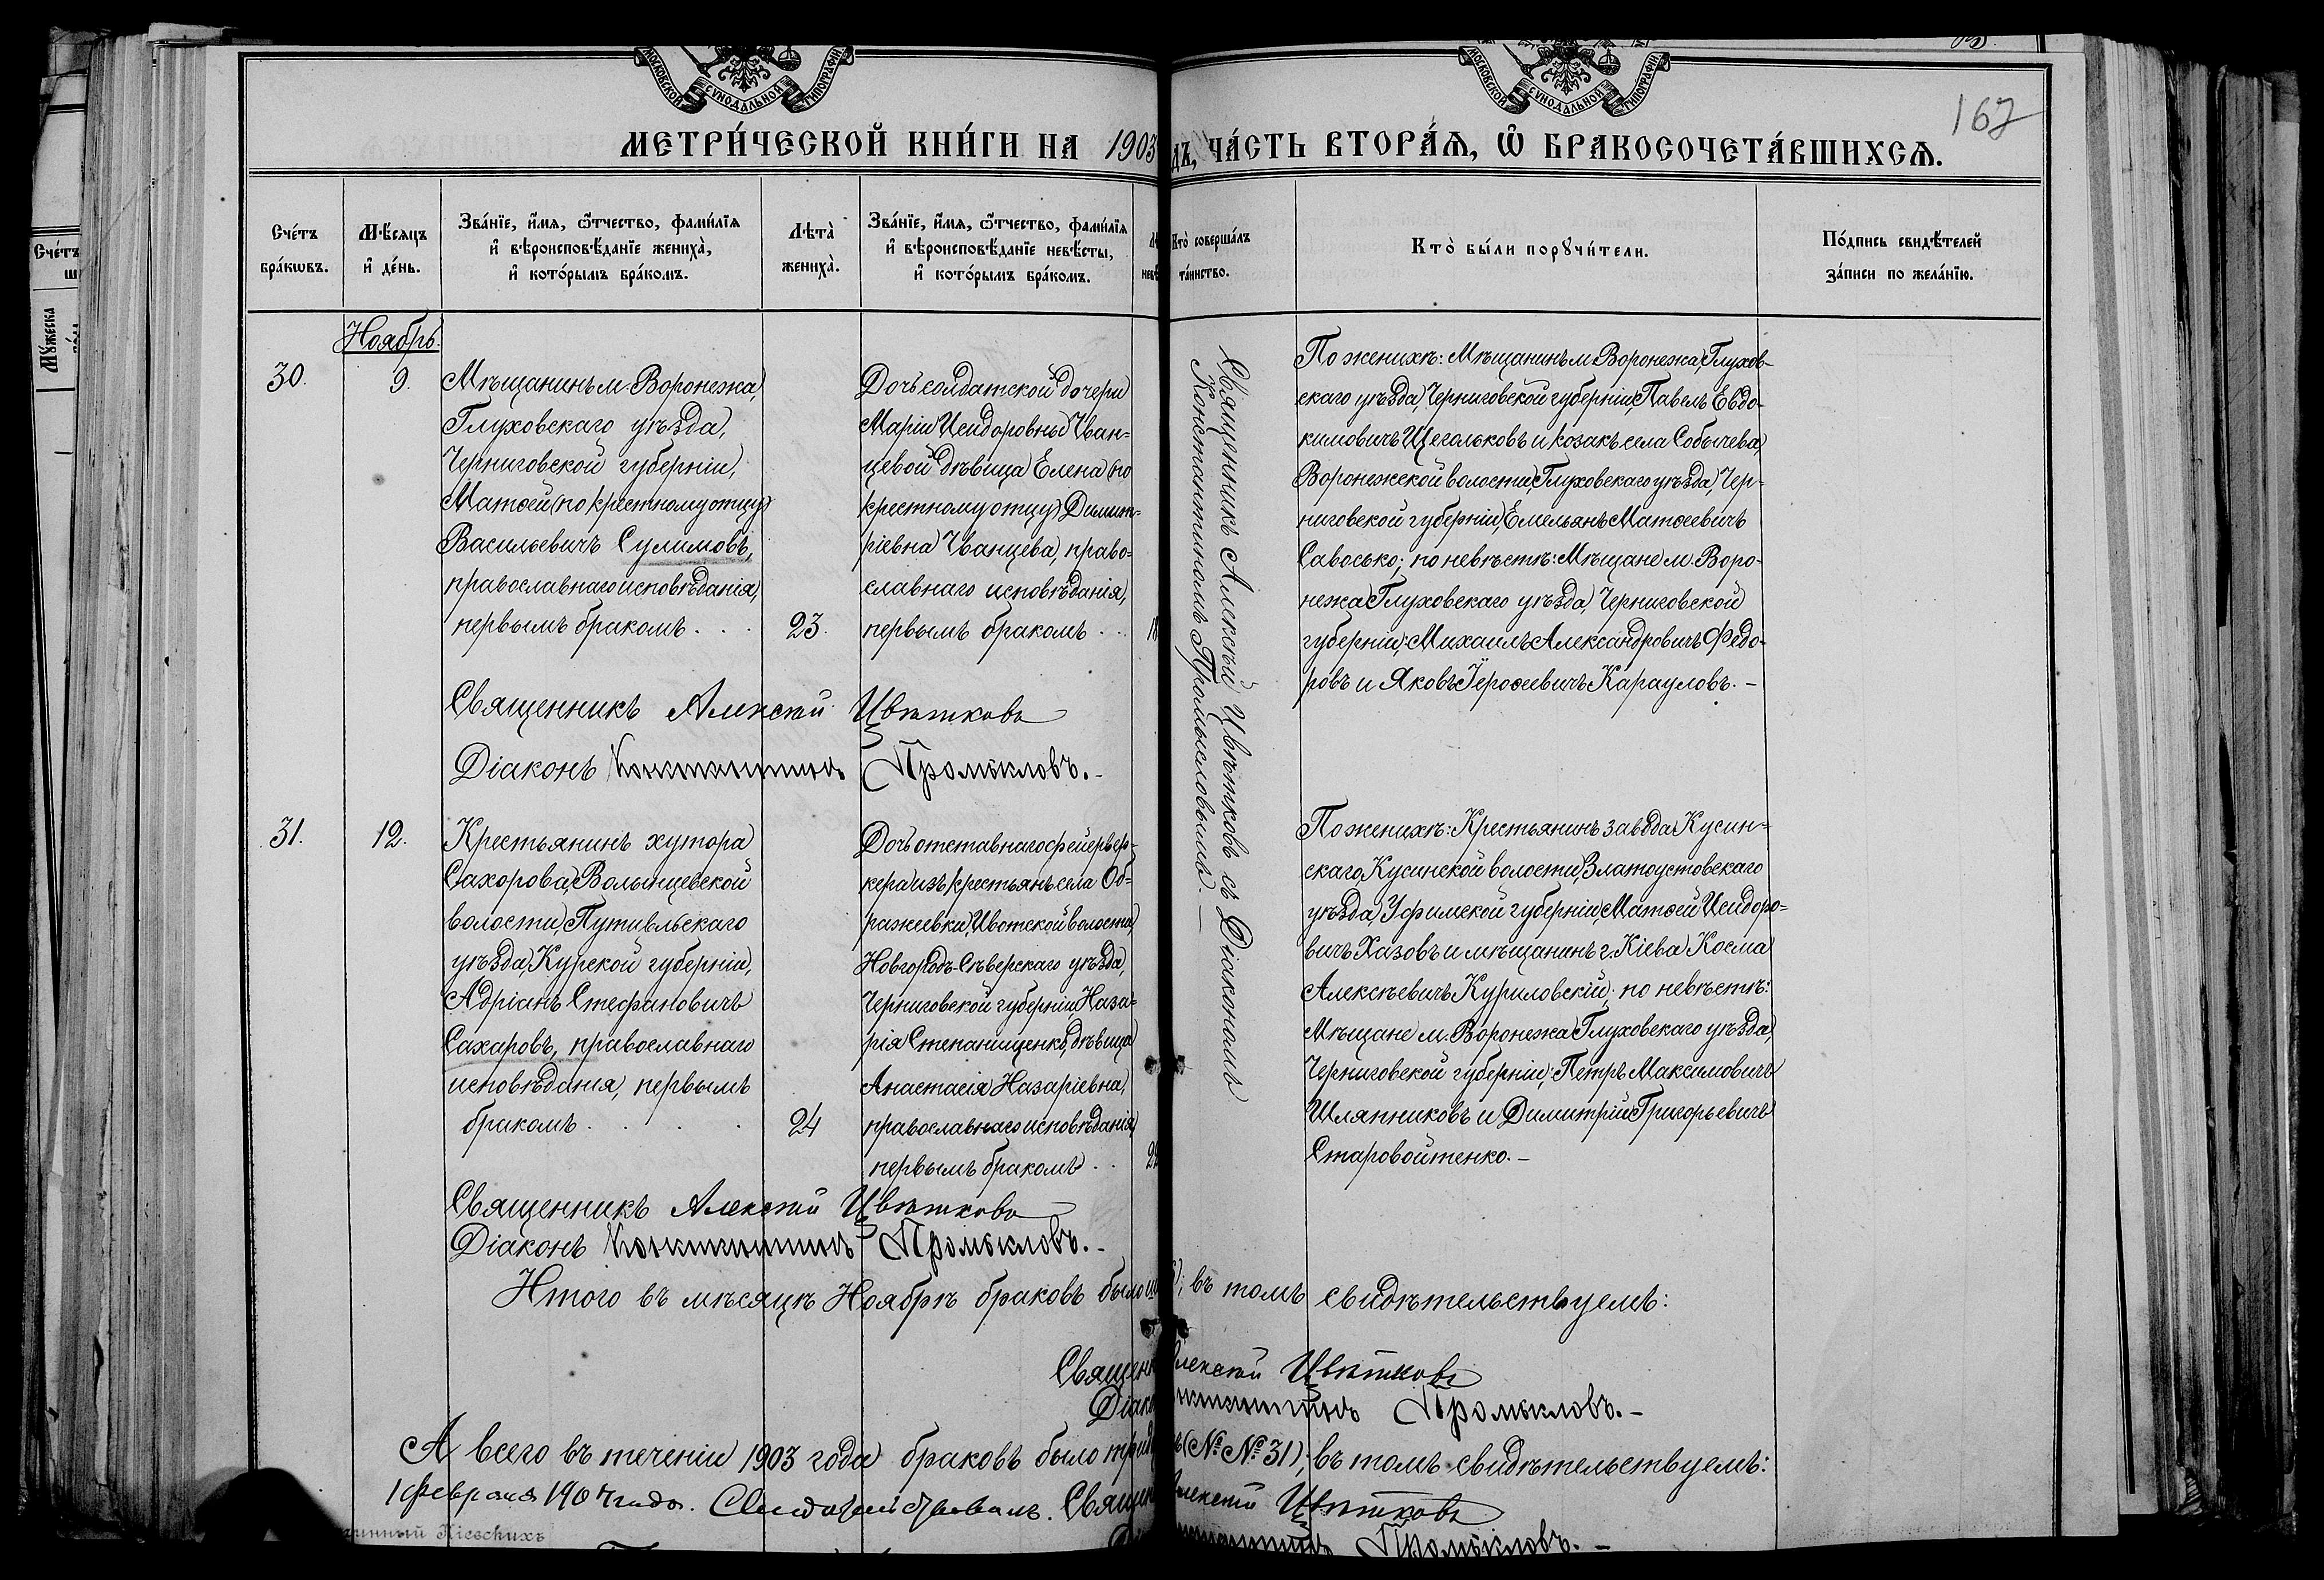 МОСКОВСКОЙ СѴНОДАЛЬНОЙ ТИПОГРАФІИ
МОСКОВСКОЙ СѴНОДАЛЬНОЙ ТИПОГРАФІИ
167
МЕТРИ́ЧЕСКОЙ КНИ́ГИ НА 1903
ДЪ, ЧА́СТЬ ВТОРА́Ѧ, Ѽ БРАКОСОЧЕТА́ВШИХСѦ.
Сче́тъ
бра́кѡвъ.
Мѣ́сяцъ
и҆ де́нь.
Зва́нїе, и҆́мя, ѻ҆́тчество, фами́лїя
и҆ вѣроисповѣ́данїе жениха̀,
и҆ кото́рымъ бра́комъ.
Лѣта̀
жениха̀.
Зва́нїе, и҆́мя, ѻ҆́тчество, фами́лїя
и҆ вѣроисповѣ́данїе невѣ́сты,
и҆ кото́рымъ бра́комъ.
Кто̀ соверша́лъ
та́инство.
Кто̀ бы́ли порꙋчи́тели.
По́дпись свидѣ́телей
за́писи по жела́нїю.
Ноябрь.
30.
9.
Мѣщанинъ м. Воронежа,
Глуховскаго уѣзда,
Черниговской губерніи,
Матѳей (по крестному отцу)
Васильевичъ Сулимовъ,
православнаго исповѣданія,
первымъ бракомъ . . .
23.
Дочь солдатской дочери
Маріи Исидоровны Чван-
цевой дѣвица Елена (по
крестному отцу) Димит-
ріевна Чванцева, право-
славнаго исповѣданія,
первымъ бракомъ . . .
18
Священникъ Алексѣй Цвѣтковъ съ Діакономъ
Константиномъ Промысловымъ. —
По женихѣ: Мѣщанинъ м. Воронежа, Глухов-
скаго уѣзда, Черниговской губерніи, Павелъ Евдо-
кимовичъ Щегольковъ и козакъ села Собычева,
Воронежской волости, Глуховскаго уѣзда, Чер-
ниговской губерніи, Емельянъ Матѳеевичъ
Савосько; по невѣстѣ: Мѣщане м. Воро-
нежа Глуховскаго уѣзда, Черниговской
губерніи; Михаилъ Александровичъ Федо-
ровъ и Яковъ Іероѳеевичъ Карауловъ. —
Священникъ Алексѣй Цвѣтковъ
Діаконъ Константинъ Промысловъ. -
31.
12.
Крестьянинъ хутора
Сахорова, Волынцевской
волости, Путивльскаго
уѣзда, Курской губерніи,
Адріанъ Стефановичъ
Сахаровъ, православнаго
исповѣданія, первымъ
бракомъ . . . .
24
Дочь отставнаго фейервер-
кера изъ крестьянъ села Об-
ражеевки, Ивотской волости,
Новгородъ-Сѣверскаго уѣзда,
Черниговской губерніи, Наза-
рія Степанищенко, дѣвица
Анастасія Назаріевна,
православнаго исповѣданія,
первымъ бракомъ . . .
22
По женихѣ: Крестьянинъ завода Кусин-
скаго, Кусинской волости, Златоустовскаго
уѣзда, Уфимской губерніи, Матѳей Исидоро-
вичъ Хазовъ и мѣщанинъ г. Кіева Косма
Алексѣевичъ Куриловскій; по невѣстѣ:
Мѣщане м. Воронежа Глуховскаго уѣзда,
Черниговской губерніи; Петръ Максимовичъ
Шляпниковъ и Димитрій Григорьевичъ
Старовойтенко. —
Священникъ Алексѣй Цвѣтковъ
Діаконъ Константинъ Промысловъ. -
Итого въ мѣсяцѣ Ноябрѣ браковъ было ; въ томъ свидѣтельствуемъ:
Священ Алексѣй Цвѣтковъ
Діако Промысловъ. —
А всего въ теченіи 1903 года браковъ было (№ № 31); въ томъ свидѣтельствуемъ:
1 февраля 1904 года. Священ Алексѣй Цвѣтковъ
Промысловъ. —